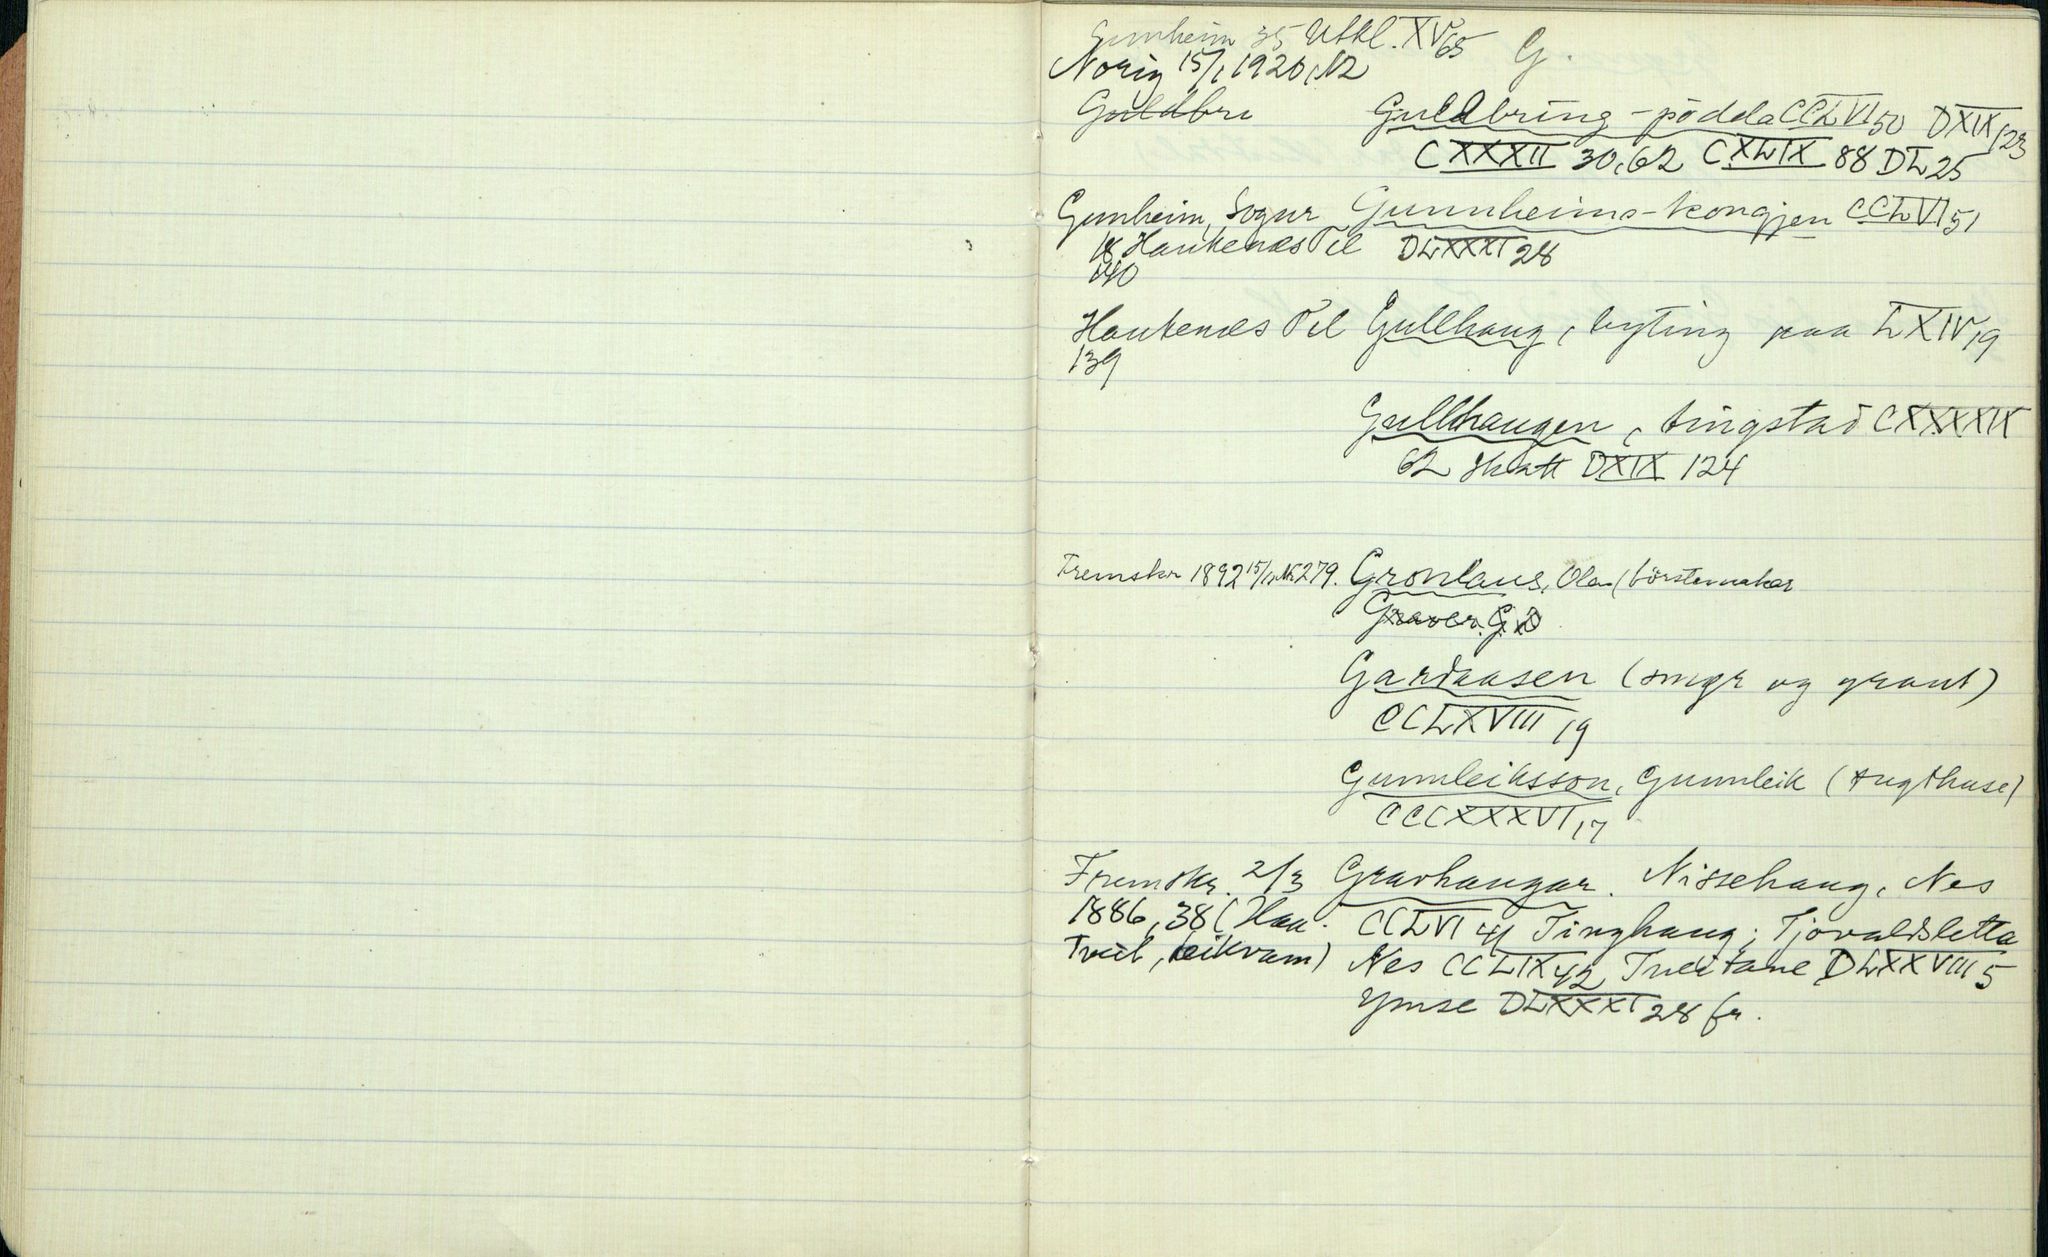 Gunheim 35 Utkl. XV 65 G.
Norig 15/1 1920, N2
Guldbru Guldbring-pödda CCLVI 50 DXIX 123
CXXXII 30, 62 CXLIX 88 DL 25
Gunheim, Sogur Gunnheims-kongjen CCLVI 51
18 Haukenæs Tel DLXXXI 28
140
Haukenæs Tel Gullhaug, bytting paa LXIV 19
139
Gullhaugen, tingstad CXXXXIX
62 skatt DXIX 124
Fremskr 1892 15/12 N 279. Grönlaus, Ola (börstemakar
Graver. G. D
Gardaasen (smgr og graut)
CCLXVIII 19
Gunnleiksson, Gunnleik (tugthuse)
CCCXXXVI 17
Fremskr. 2/3 Gravhaugar. Nissehaug, Nes
1886, 38 (Hau- CCLVI 41 Tinghaug; Tjovaldsletta
tveit, Leikvam) Nes CCLIX 42 Tveitane DLXXVIII 5
Ymse DLXXXI 28 fr.